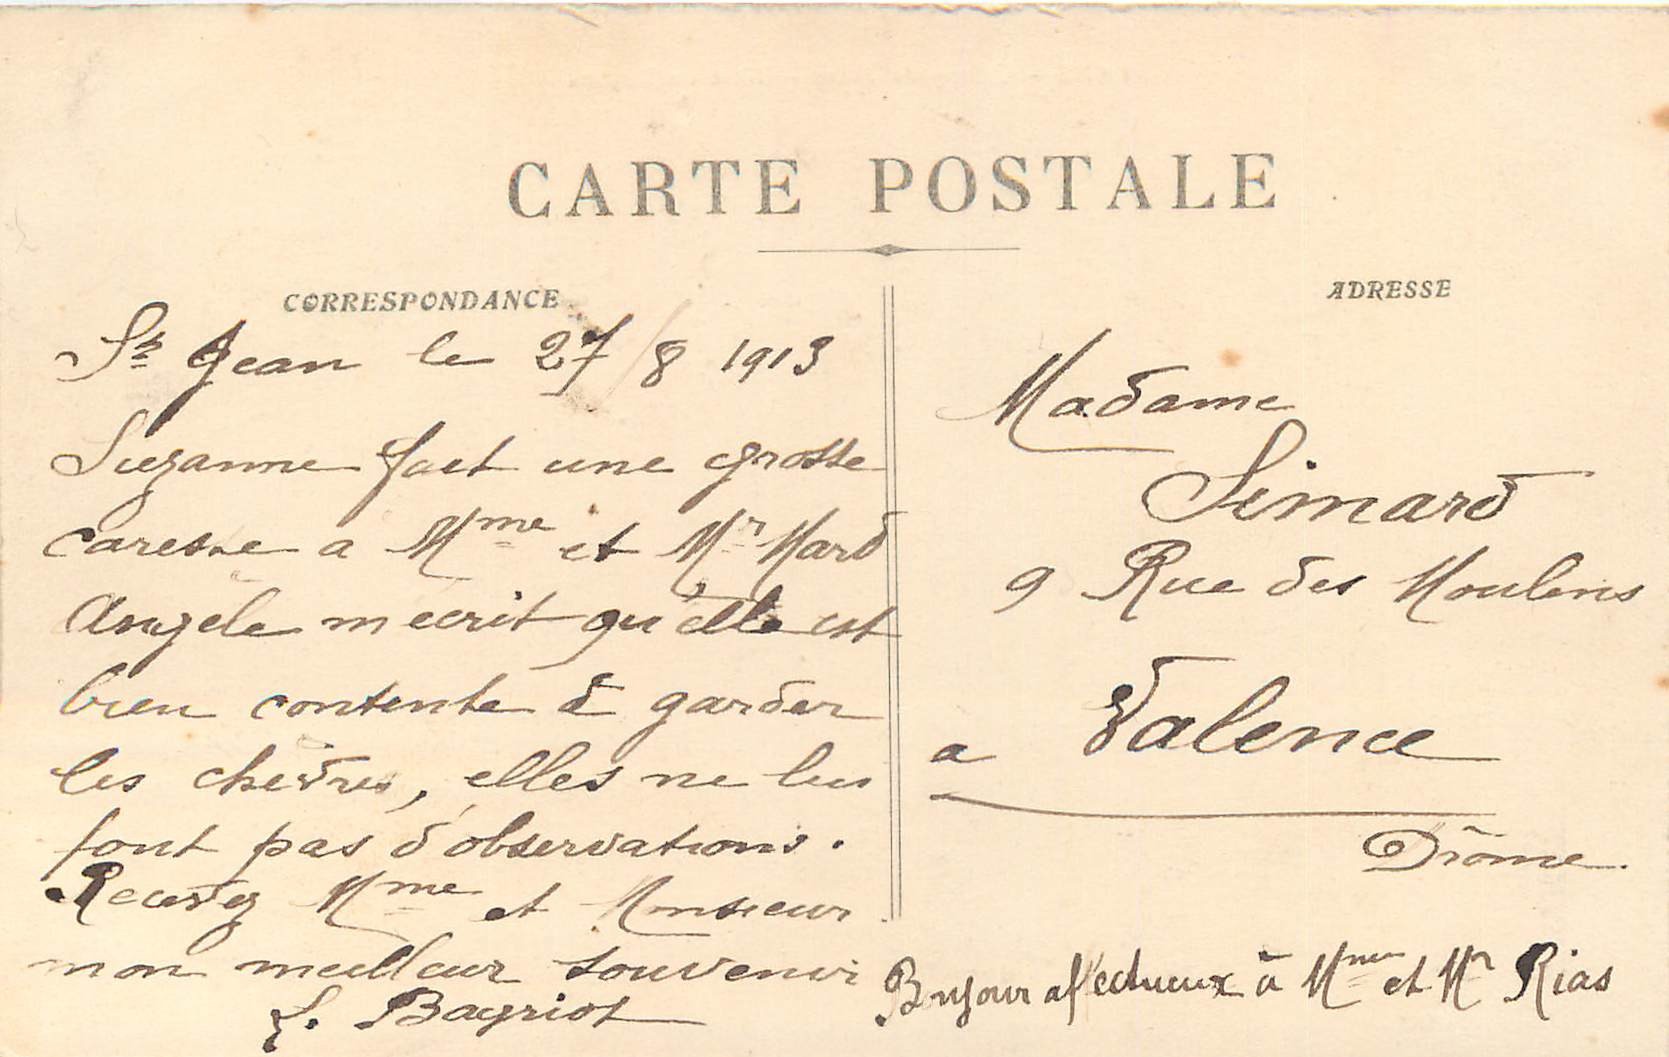 CARTE POSTALE
CORRESPONDANCE
St Jean le 27/8 1913
Suzanne fait une grosse
caresse a Mme et Mr Mard
Angele m ecrit qu'elle est
bien contente d garder
les chèvres, elles ne lui
font pas d'observations.
Recevez Mme et Monsieur
mon meilleur souvenir
Bayriot
ADRESSE
Madame
Simard
9 Rue des Moulins
a Valence
Drôme.
Bonjour affectueux à Mme et Mr Rias